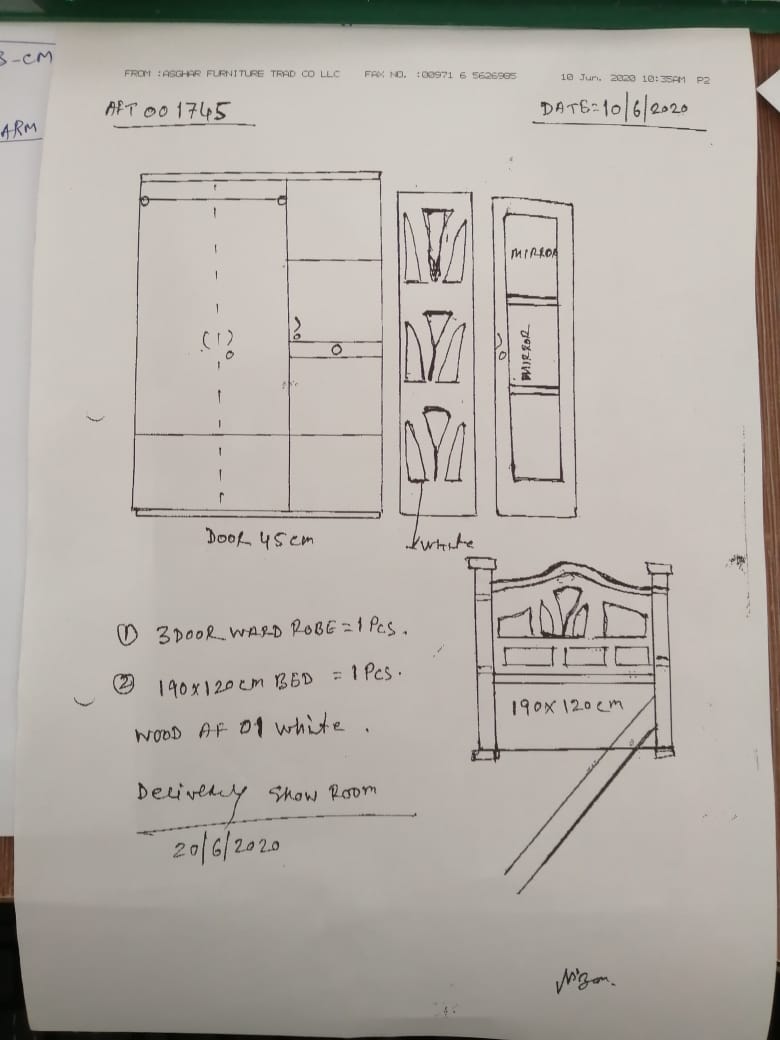 3-CM
ARM
FROM :ASGHAR FURNITURE TRAD CO LLC FAX NO. :00971 6 5626985 10 Jun. 2020 10:35AM P2
AFT 001745
DATE=10/6/2020
MIRROR
MIRROR
DOOR 45cm
white
① 3DOOR WARD ROBE = 1 Pcs.
② 190x120cm BED = 1 Pcs.
WOOD AF 01 white.
190x120cm
Delivery Show Room
20/6/2020